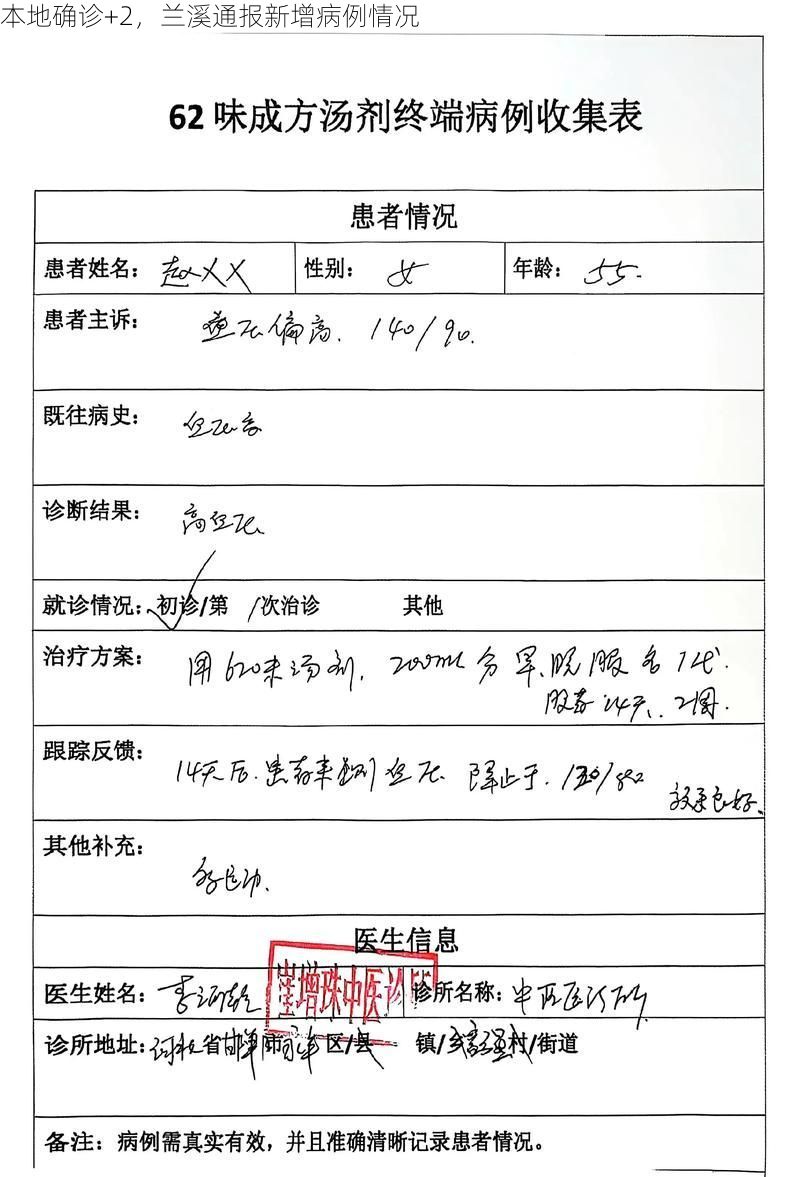 本地确诊+2，兰溪通报新增病例情况
62味成方汤剂终端病例收集表
患者情况
患者姓名：赵XX 性别：女 年龄：55.
患者主诉：
血压偏高. 140/90.
既往病史：
血压高
诊断结果：
高血压
就诊情况：初诊/第 /次治诊 其他
治疗方案：
用620味汤剂. 200ml 分早、晚服各1代.
服药14天、2周.
跟踪反馈：
14天后.患者来 血压 降 于. /
效果良好.
其他补充：
医生信息
医生姓名：李 诊所名称：中医诊所
崔增珠中医诊所
诊所地址：河北省邯郸市 区/县 镇/乡 村/街道
备注：病例需真实有效，并且准确清晰记录患者情况。